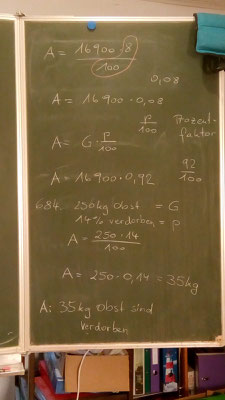 A = 16900 · 8 / 100
0,08
A = 16900 · 0,08
p/100 Prozent-
faktor
A = G · p/100
92/100
A = 16900 · 0,92
684. 250kg Obst = G
14% verdorben = p
A = 250 · 14 / 100
A = 250 · 0,14 = 35kg
A: 35kg Obst sind
verdorben